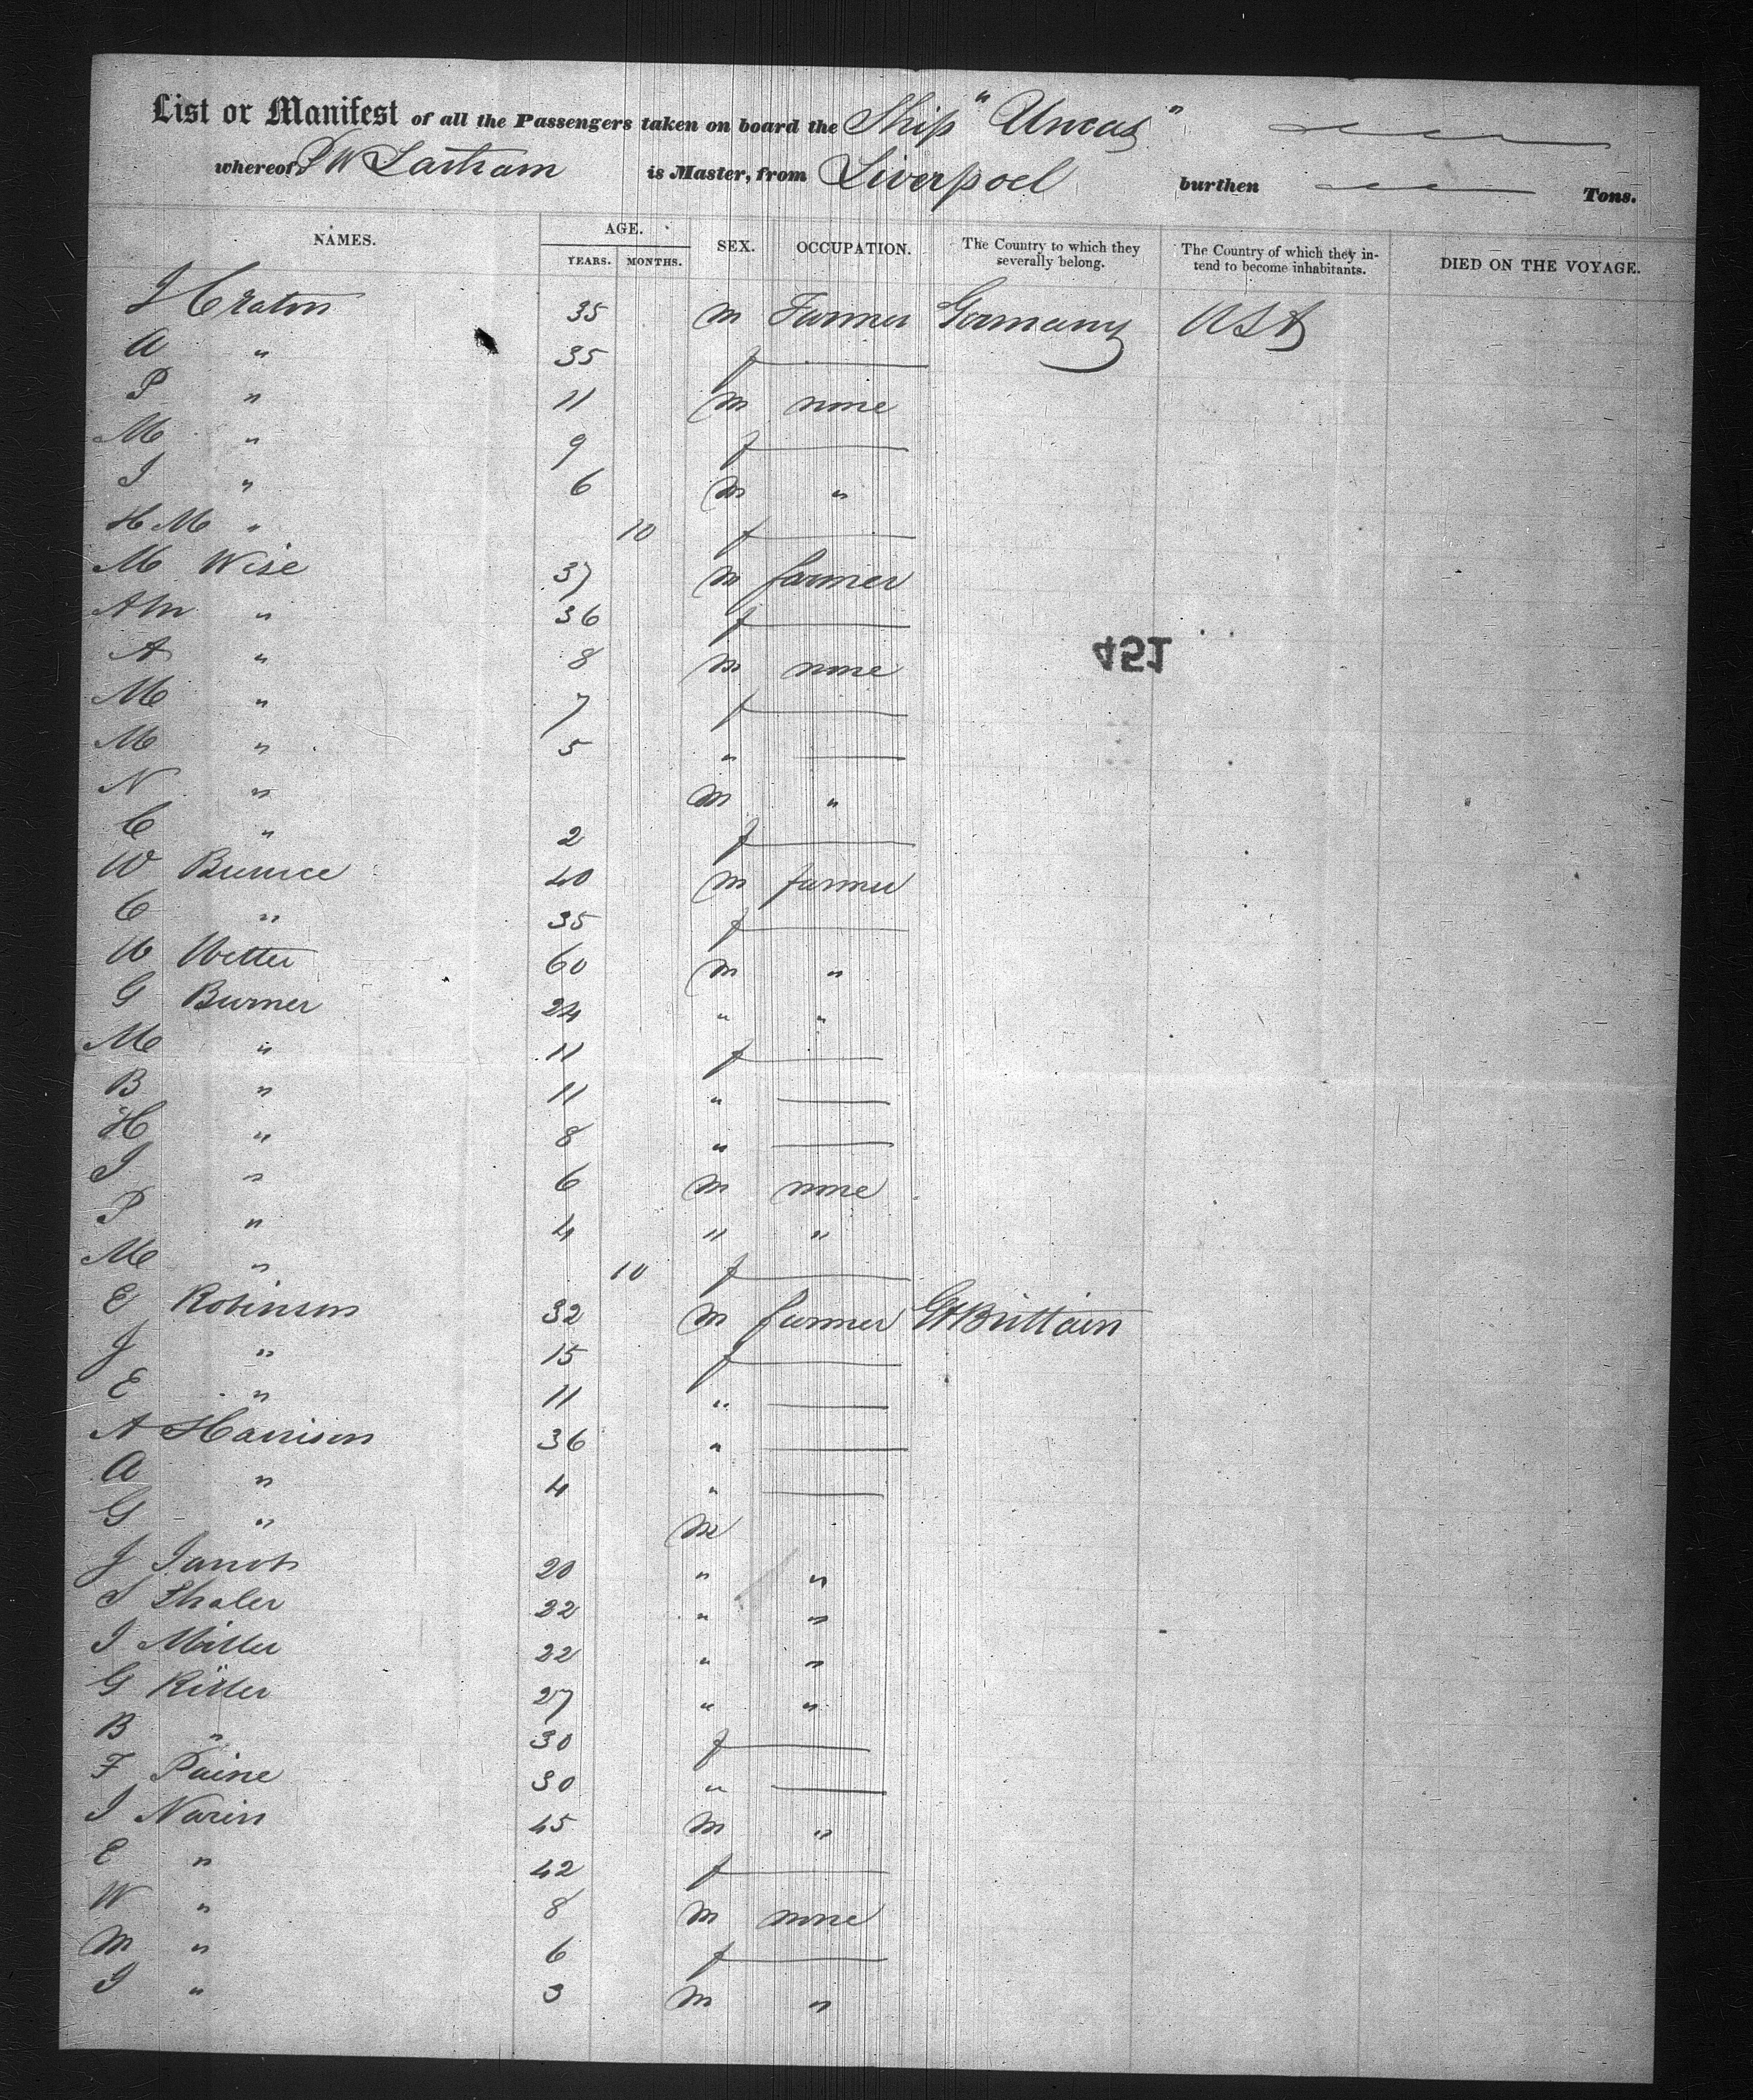 List or Manifest of all the Passengers taken on board the Ship "Uncas"
whereof P W Latham is Master, from Liverpoel burthen Tons.
NAMES. AGE. SEX. OCCUPATION. The Country to which they severally belong. The Country of which they in-tend to become inhabitants. DIED ON THE VOYAGE.
YEARS. MONTHS.
J 35 m Farmer Germany USA
A " 35 f
P " 11 m none
M " 9 f
I " 6 m "
H M " 10 f
M Wise 37 m farmer
AM " 36 f
A " 8 m none
M " 7 f
M " 5 "
N " m "
C " 2 f
W 40 m farmer
C " 35 f
60 m "
G Burner 24 " "
M " 11 f
B " 11 "
H " 8 "
I " 6 m none
P " 4 " "
M " 10 f
E Robinson 32 m farmer Gt Brittain
J " 15 f
E " 11 "
A Harrison 36 "
A " 4 "
G " m
J 20 " "
S Thaler 22 " "
I Miller 22 " "
G 27 " "
B " 30 f
F Paine 30 "
I Narin 45 m "
E " 42 f
W " 8 m none
M " 6 f
I " 3 m "
451